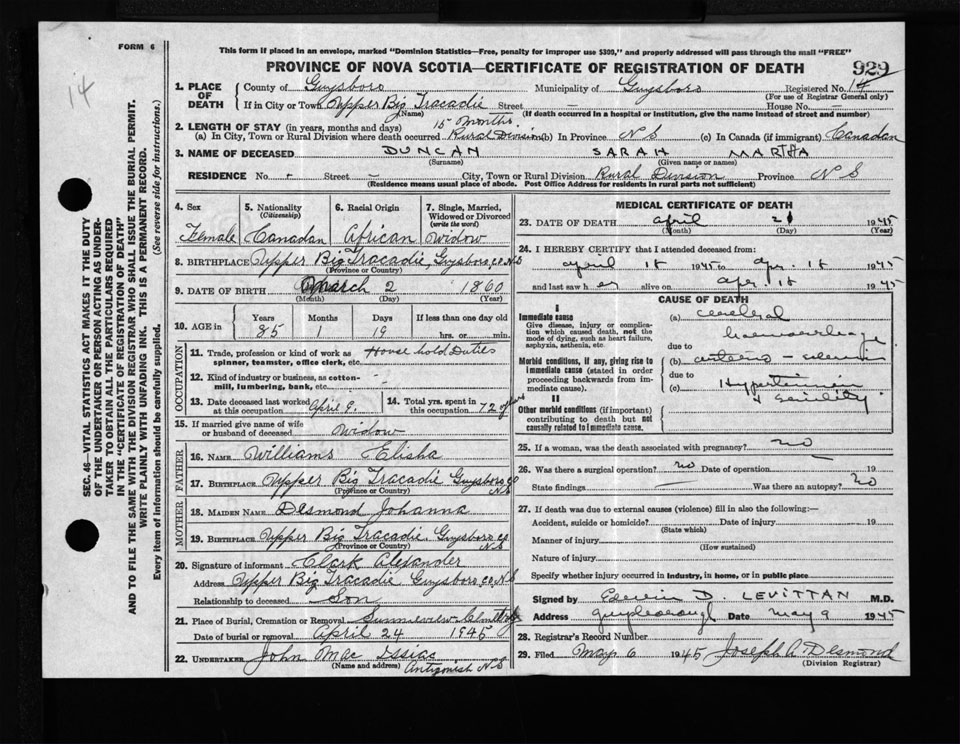 FORM 6
This form if placed in an envelope, marked "Dominion Statistics—Free, penalty for improper use $300," and properly addressed will pass through the mail "FREE"
PROVINCE OF NOVA SCOTIA—CERTIFICATE OF REGISTRATION OF DEATH
929
14
SEC. 46—VITAL STATISTICS ACT MAKES IT THE DUTY
OF THE UNDERTAKER OR PERSON ACTING AS UNDER-
TAKER TO OBTAIN ALL THE PARTICULARS REQUIRED
IN THE "CERTIFICATE OF REGISTRATION OF DEATH"
AND TO FILE THE SAME WITH THE DIVISION REGISTRAR WHO SHALL ISSUE THE BURIAL PERMIT.
WRITE PLAINLY WITH UNFADING INK. THIS IS A PERMANENT RECORD.
Every item of Information should be carefully supplied. (See reverse side for instructions.)
1. PLACE OF DEATH County of Guysboro Municipality of Guysboro Registered No. 14
(For use of Registrar General only)
If in City or Town Upper Big Tracadie Street — House No.
(Name) (If death occurred in a hospital or institution, give the name instead of street and number)
15 months
2. LENGTH OF STAY (in years, months and days)
(a) In City, Town or Rural Division where death occurred Rural Division (b) In Province N S (c) In Canada (if immigrant) Canadian
3. NAME OF DECEASED DUNCAN SARAH MARTHA
(Surname) (Given name or names)
RESIDENCE No. - Street — City, Town or Rural Division Rural Division Province N S
(Residence means usual place of abode. Post Office Address for residents in rural parts not sufficient)
4. Sex Female
5. Nationality (Citizenship) Canadian
6. Racial Origin African
7. Single, Married, Widowed or Divorced (write the word) Widow
8. BIRTHPLACE Upper Big Tracadie, Guysboro, Co. N S
(Province or Country)
9. DATE OF BIRTH March 2 1860
(Month) (Day) (Year)
10. AGE in Years 85 Months 1 Days 19 If less than one day old hrs. or min.
OCCUPATION
11. Trade, profession or kind of work as spinner, teamster, office clerk, etc. House hold Duties
12. Kind of industry or business, as cotton-mill, lumbering, bank, etc.
13. Date deceased last worked at this occupation April 9.
14. Total yrs. spent in this occupation 72 years
15. If married give name of wife or husband of deceased Widow
FATHER
16. NAME Williams Elisha
17. BIRTHPLACE Upper Big Tracadie Guysboro Co N S
(Province or Country)
MOTHER
18. MAIDEN NAME Desmond Johanna
19. BIRTHPLACE Upper Big Tracadie. Guysboro Co. N S
(Province or Country)
20. Signature of informant Clark Alexander
Address Upper Big Tracadie Guysboro, Co, N S
Relationship to deceased Son
21. Place of Burial, Cremation or Removal
Date of burial or removal April 24 1945
22. UNDERTAKER John Mac Issiac
(Name and address) Antigonish N S
MEDICAL CERTIFICATE OF DEATH
23. DATE OF DEATH April 21 1945
(Month) (Day) (Year)
24. I HEREBY CERTIFY that I attended deceased from:
April 18 1945 to Apr. 18 1945
and last saw her alive on Apr. 18 1945
CAUSE OF DEATH
I
Immediate cause
Give disease, injury or complica-
tion which caused death, not the
mode of dying, such as heart failure,
asphyxia, asthenia, etc.
(a) cerebral
hemorrhage
due to
Morbid conditions, if any, giving rise to
immediate cause (stated in order
proceeding backwards from im-
mediate cause).
(b)
due to
(c) Hypertension
& Senility
II
Other morbid conditions (if important)
contributing to death but not
causally related to immediate cause.
25. If a woman, was the death associated with pregnancy? no
26. Was there a surgical operation? no Date of operation 19
State findings — Was there an autopsy? no
27. If death was due to external causes (violence) fill in also the following:—
Accident, suicide or homicide? Date of injury 19
(State which)
Manner of injury
(How sustained)
Nature of injury
Specify whether injury occurred in industry, in home, or in public place
Signed by D. LEVITTAN M.D.
Address Guysborough Date May 9 1945
28. Registrar's Record Number
29. Filed May 6 1945 Joseph A. Desmond
(Division Registrar)